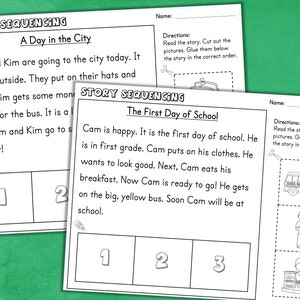 SEQUENCING
Name:
A Day in the City
Kim are going to the city today. It
outside. They put on their hats and
im gets some mone
for the bus. It is a l
m and Kim go to s
!
1
2
Directions:
Read the story. Cut out the
pictures. Glue them below
the story in the correct order.
STORY SEQUENCING
Name:
The First Day of School
Cam is happy. It is the first day of school. He
is in first grade. Cam puts on his clothes. He
wants to look good. Next, Cam eats his
breakfast. Now Cam is ready to go! He gets
on the big, yellow bus. Soon Cam will be at
school.
1
2
3
Directions:
Read the st
pictures. Gl
the story in